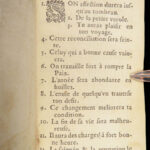 SON affection durera jus-
qu'au tombeau.
2. De la petite verole.
3. Tu auras plaisir en
ton voyage.
4. Cette reconciliation sera fein-
te.
5. Celuy qui a bonne cause vain-
cra.
6. On travaille fort à rompre la
Paix.
7. L'année sera abondante en
huiles.
8. L'excuse de quelqu'un traverse
ton desir.
9. Ce changement meliorera ta
condition.
10. La fin de ta vie sera malheu-
reuse.
11. Il aura des charges à fort bon-
ne heure.
12. à la